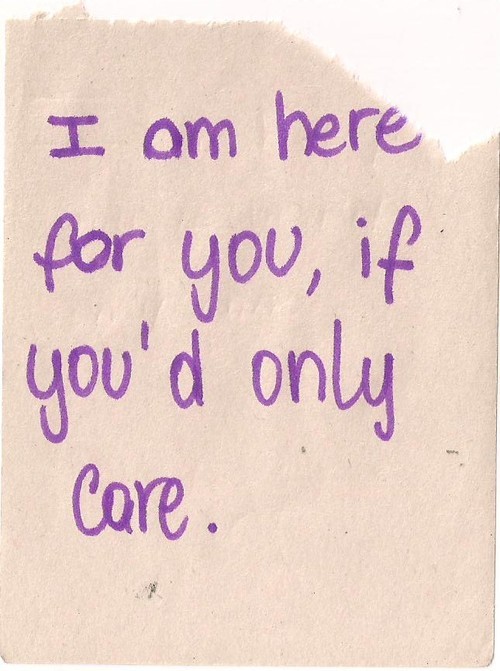 I am here
for you, if
you'd only
care.